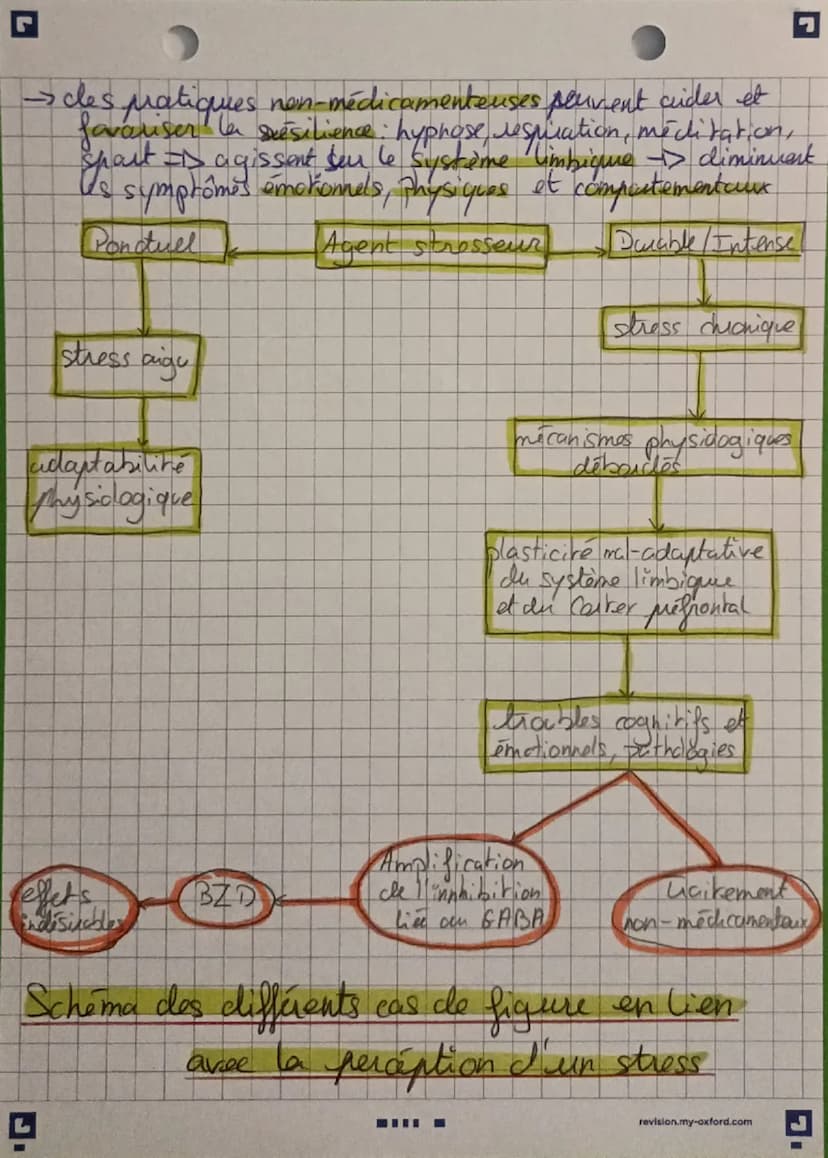 → des pratiques non-médicamenteuses peuvent aider et
favoriser la résilience : hypnose, respiration, méditation,
sport => agissent sur le système limbique -> diminuent
les symptômes émotionnels, physiques et comportementaux
Ponctuel
Agent stresseur
Durable/Intense
stress aigu
stress chronique
adaptabilité
physiologique
mécanismes physiologiques
débordés
plasticité mal-adaptative
du système limbique
et du Cortex préfrontal
troubles cognitifs et
émotionnels, pathologies
Amplification
de l'innhibition
liée au GABA
BZD
effets
indésirables
traitement
non-médicamenteux
Schéma des différents cas de figure en lien
avec la perception d'un stress
revision.my-oxford.com